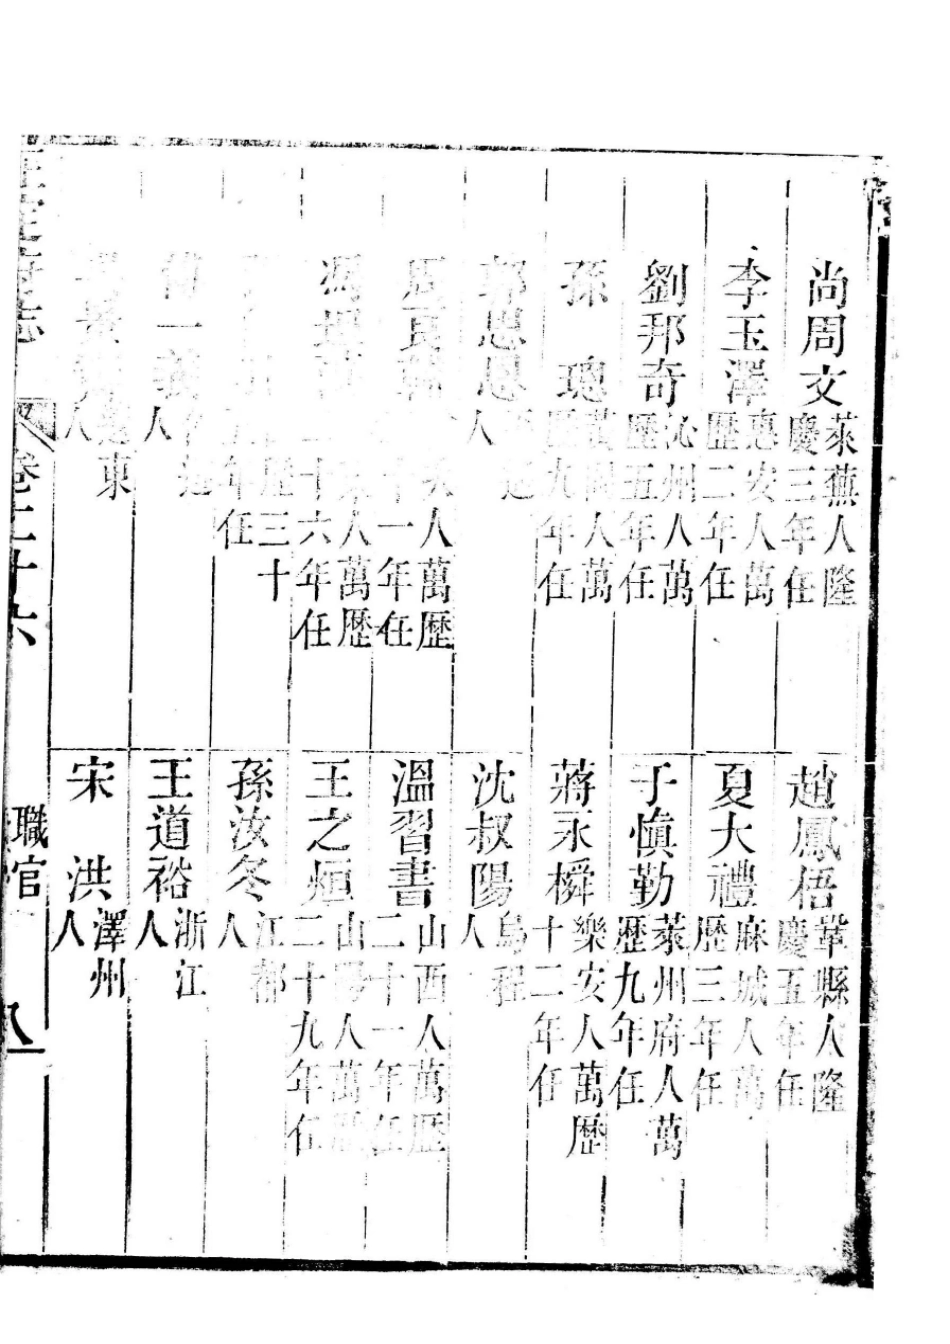 尚周文 萊蕪人隆慶三年任
趙鳳梧 鞏縣人隆慶五年任
李玉澤 惠安人萬歷二年任
夏大禮 麻城人萬歷三年任
劉邦奇 沁州人萬歷五年任
于慎勤 萊州府人萬歷九年任
孫璁 人萬歷九年任
蔣永橓 樂安人萬歷十二年任
郭恩 人
沈叔陽 烏程人
周良 人萬歷十一年任
溫習書 山西人萬歷二十一年任
馮 人萬歷二十六年任
王之烜 山陽人萬歷二十九年任
歷三十五年任
孫汝冬 江都人
傅一 人
王道裕 浙江人
東人
宋洪 澤州人
正定府志 卷二十六 職官 八